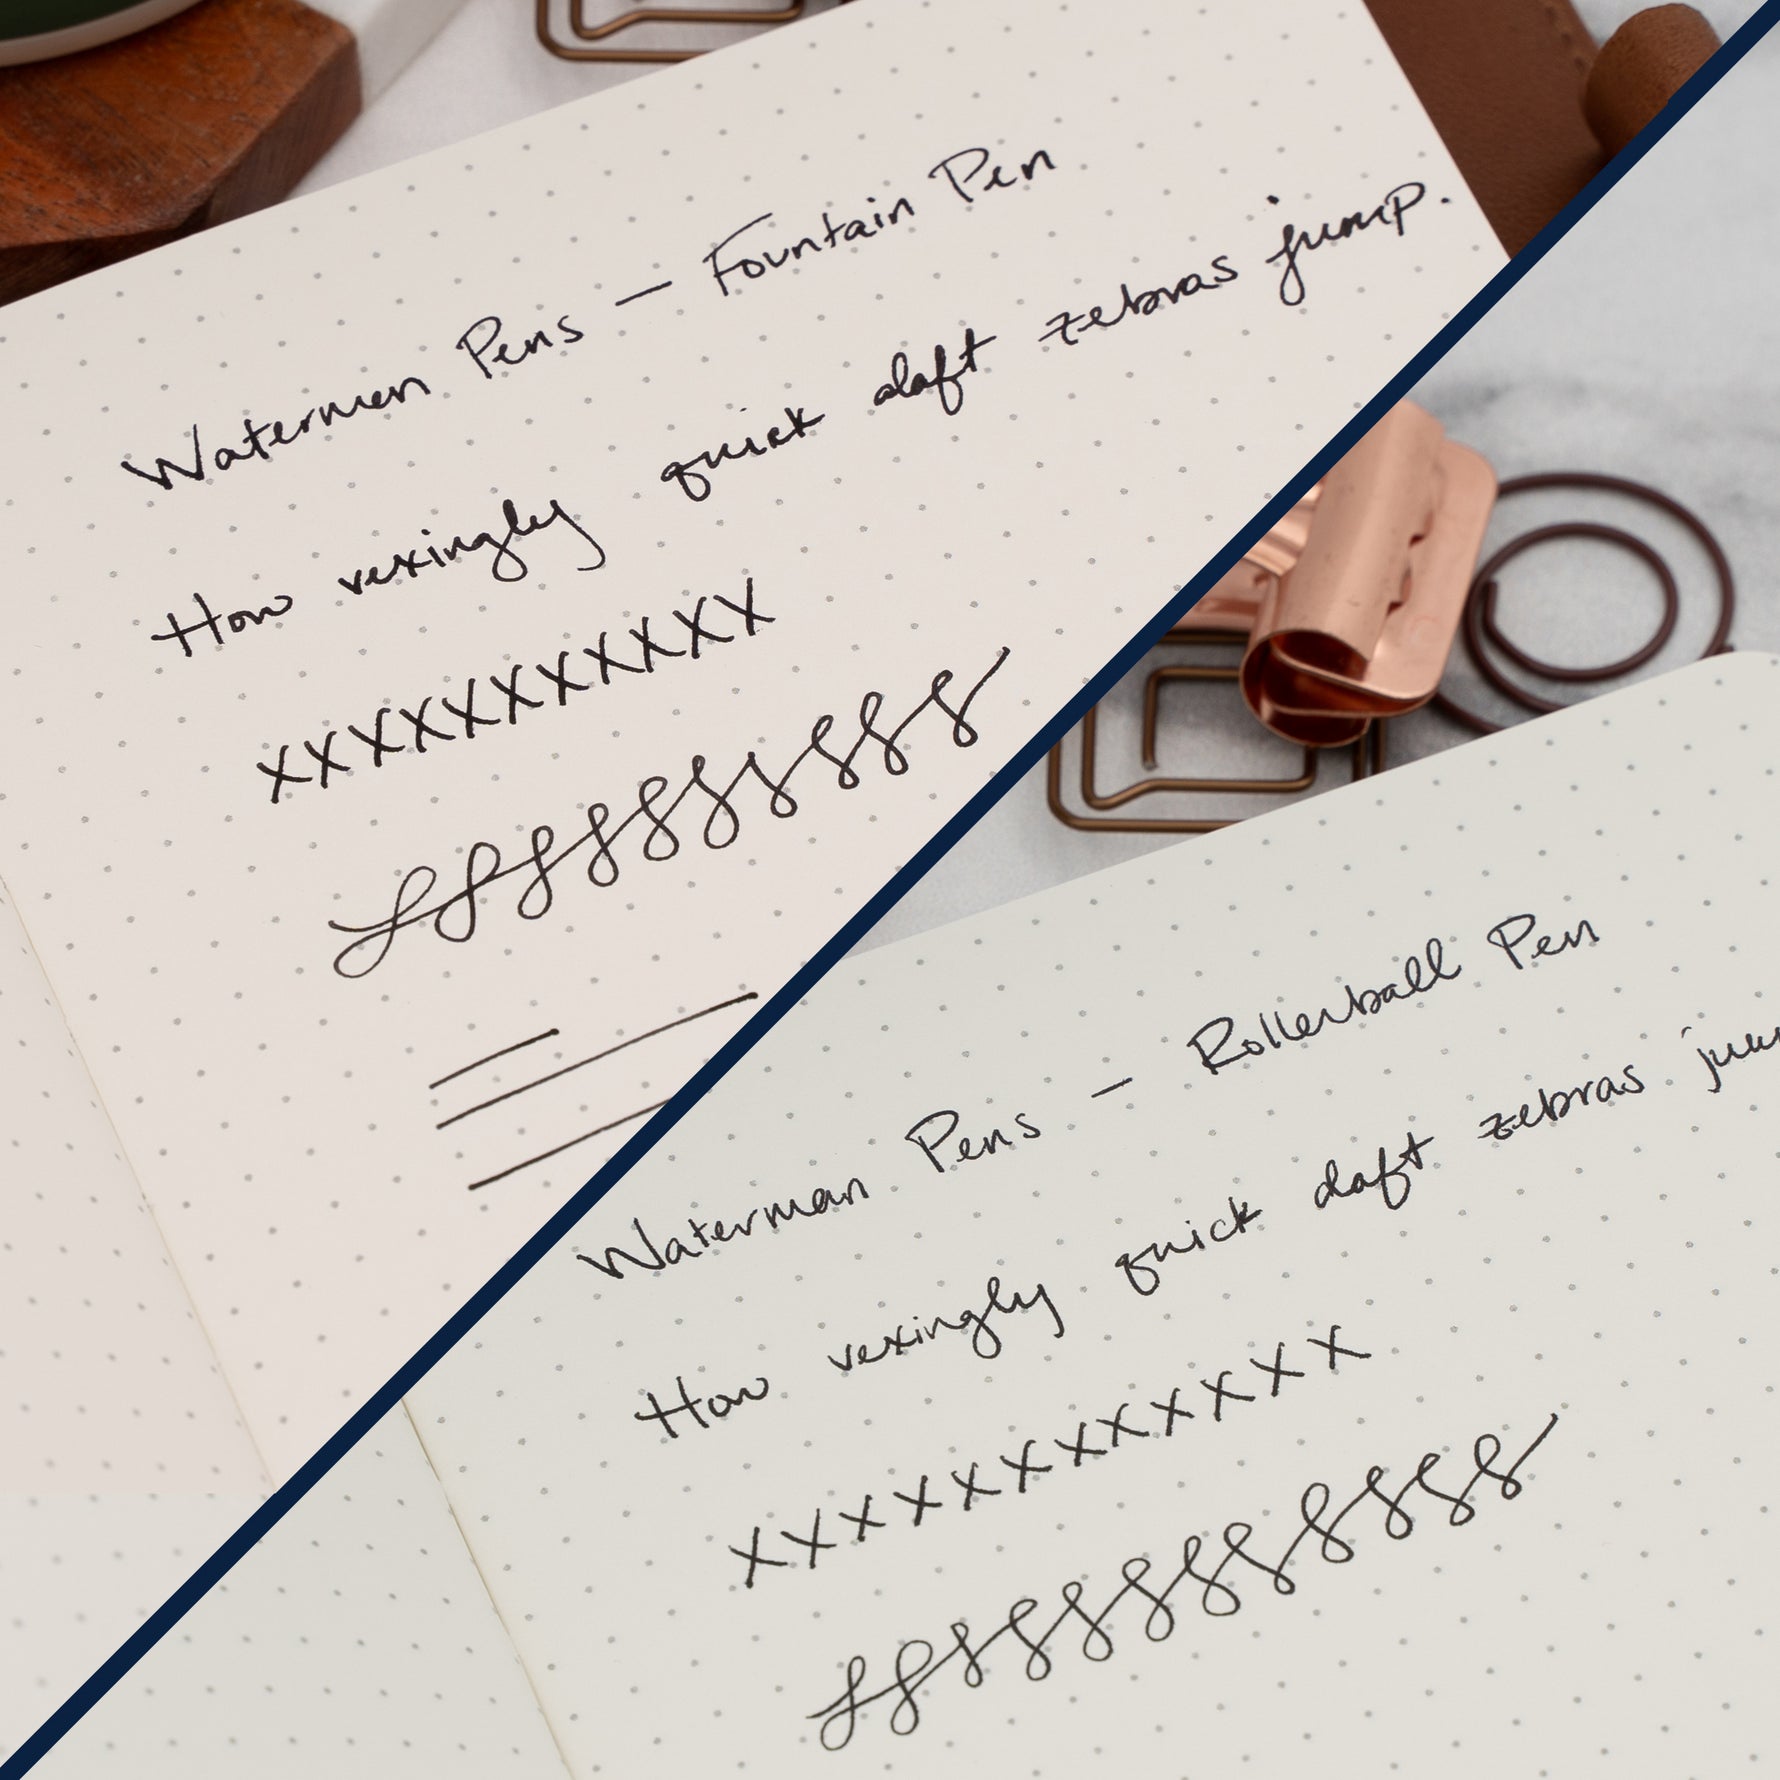 Waterman Pens — Fountain Pen
How vexingly quick daft zebras jump.
XXXXXXXXXXX
Waterman Pens — Rollerball Pen
How vexingly quick daft zebras
XXXXXXXXXXXX